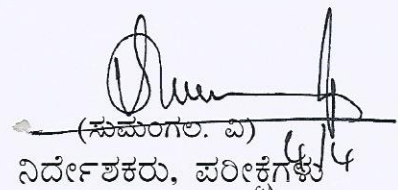 (ಸುಮಂಗಲ. ವಿ)
4/4
ನಿರ್ದೇಶಕರು, ಪರೀಕ್ಷೆಗಳು